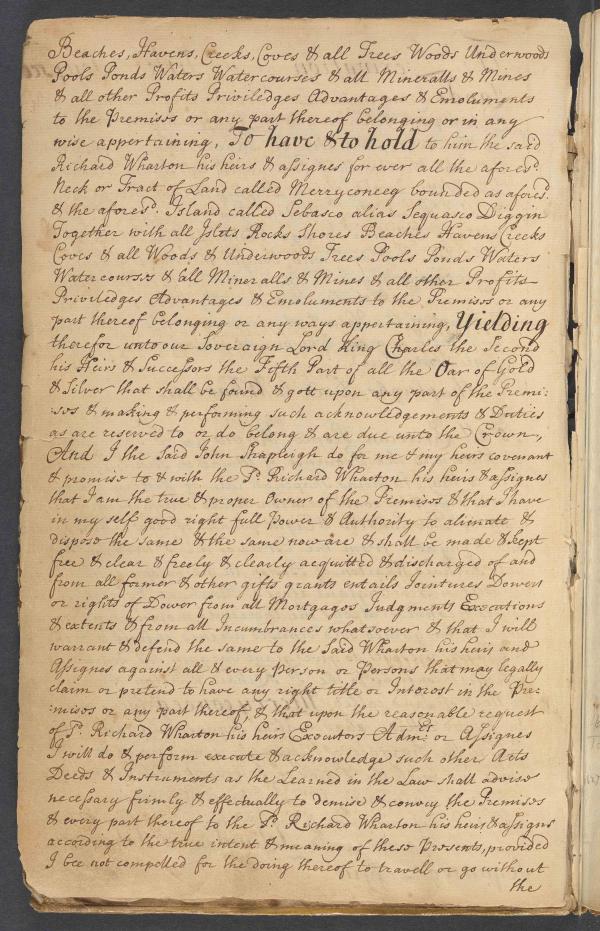 Beaches, Havens, Creeks, Coves & all Trees Woods Underwoods
Pools Ponds Waters Watercourses & all Mineralls & Mines
& all other Profits Priviledges Advantages & Emoluments
to the Premisses or any part thereof belonging or in any
wise appertaining, To have & to hold to him the said
Richard Wharton his heirs & assignes for ever all the aforesd.
Neck or Tract of Land called Merryconeeg bounded as afores.d
& the aforesd. Island called Sebasco alias Sequasco Diggin
Together with all Islets Rocks Shores Beaches Havens Creeks
Coves & all Woods & Underwoods Trees Pools Ponds Waters
Watercourses & all Mineralls & Mines & all other Profits
Priviledges Advantages & Emoluments to the Premises or any
part thereof belonging or any ways appertaining, Yielding
therefor unto our Soveraign Lord King Charles the Second
his Heirs & Successors the Fifth Part of all the Oar of Gold
& Silver that shall be found & gott upon any part of the Premi=
=ses & making & performing such acknowledgements & Duties
as are reserved to or do belong & are due unto the Crown,
And I the Said John Shapleigh do for me & my heirs covenant
& promise to & with the Sd. Richard Wharton his heirs & assignes
that I am the true & proper Owner of the Premises & that I have
in my self good right full Power & Authority to alienate &
dispose the same & the same now are & shall be made & kept
free & clear & freely & clearly acquitted & discharged of and
from all former & other gifts grants entails Jointures Dowers
or rights of Dower from all Mortgages Judgments Executions
& extents & from all Incumbrances whatsoever & that I will
warrant & defend the same to the Said Wharton his heirs and
Assignes against all & every Person or Persons that may legally
claim or pretend to have any right title or Interest in the Pre=
=mises or any part thereof, & that upon the reasonable request
of Sd. Richard Wharton his heirs Executors Admrs or Assignes
I will do & perform execute & acknowledge such other Acts
Deeds & Instruments as the Learned in the Law shall advise
necessary firmly & effectually to demise & convey the Premises
& every part thereof to the Sd. Richard Wharton his heirs & assigns
according to the true intent & meaning of these Presents, provided
I bee not compelled for the doing thereof to travell or go without
the